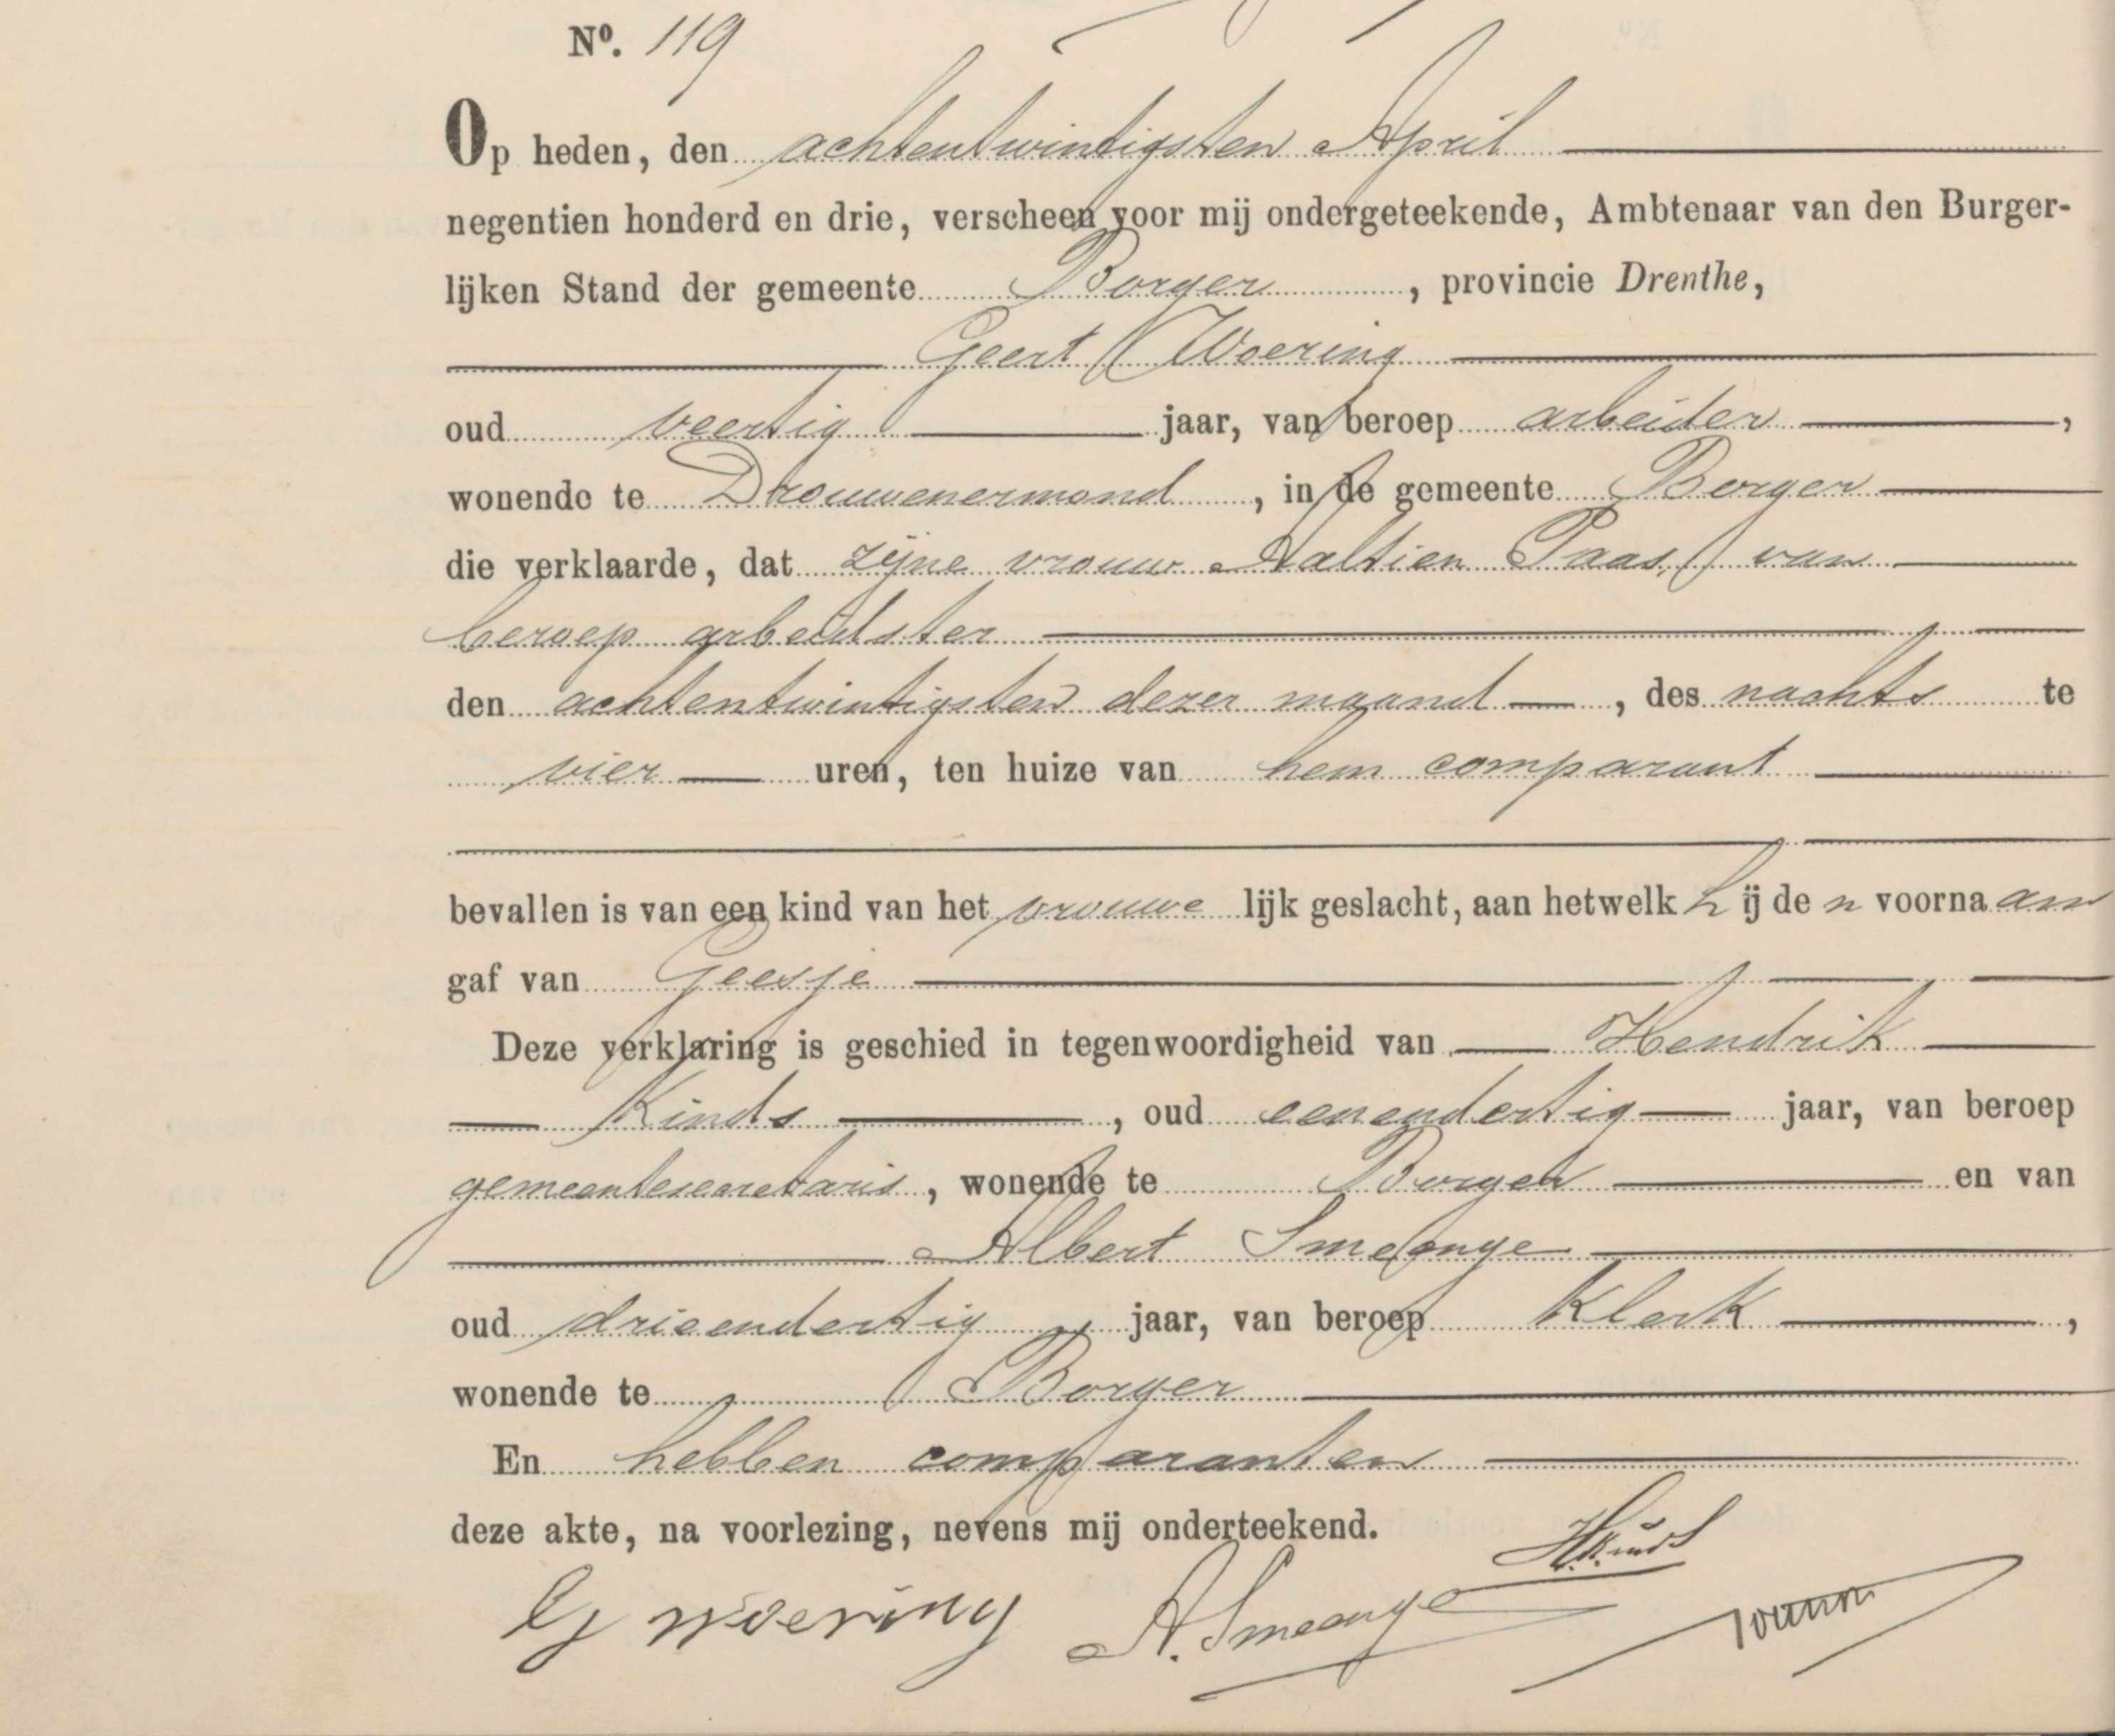 Nº. 119
Op heden, den achtentwintigsten April
negentien honderd en drie, verscheen voor mij ondergeteekende, Ambtenaar van den Burger-
lijken Stand der gemeente Borger, provincie Drenthe,
Geert Woering
oud veertig jaar, van beroep arbeider,
wonende te Drouwenermond, in de gemeente Borger
die verklaarde, dat zijne vrouw Aaltien Paas, van
beroep arbeidster
den achtentwintigsten dezer maand, des nachts te
vier uren, ten huize van hem comparant
bevallen is van een kind van het vrouwelijk geslacht, aan hetwelk hij den voornaam
gaf van Geesje
Deze verklaring is geschied in tegenwoordigheid van Hendrik
Kinds, oud eenendertig jaar, van beroep
gemeentesecretaris, wonende te Borger en van
Albert Smeenge
oud drieendertig jaar, van beroep klerk,
wonende te Borger
En hebben comparanten
deze akte, na voorlezing, nevens mij onderteekend.
HKinds
G Woering A. Smeenge